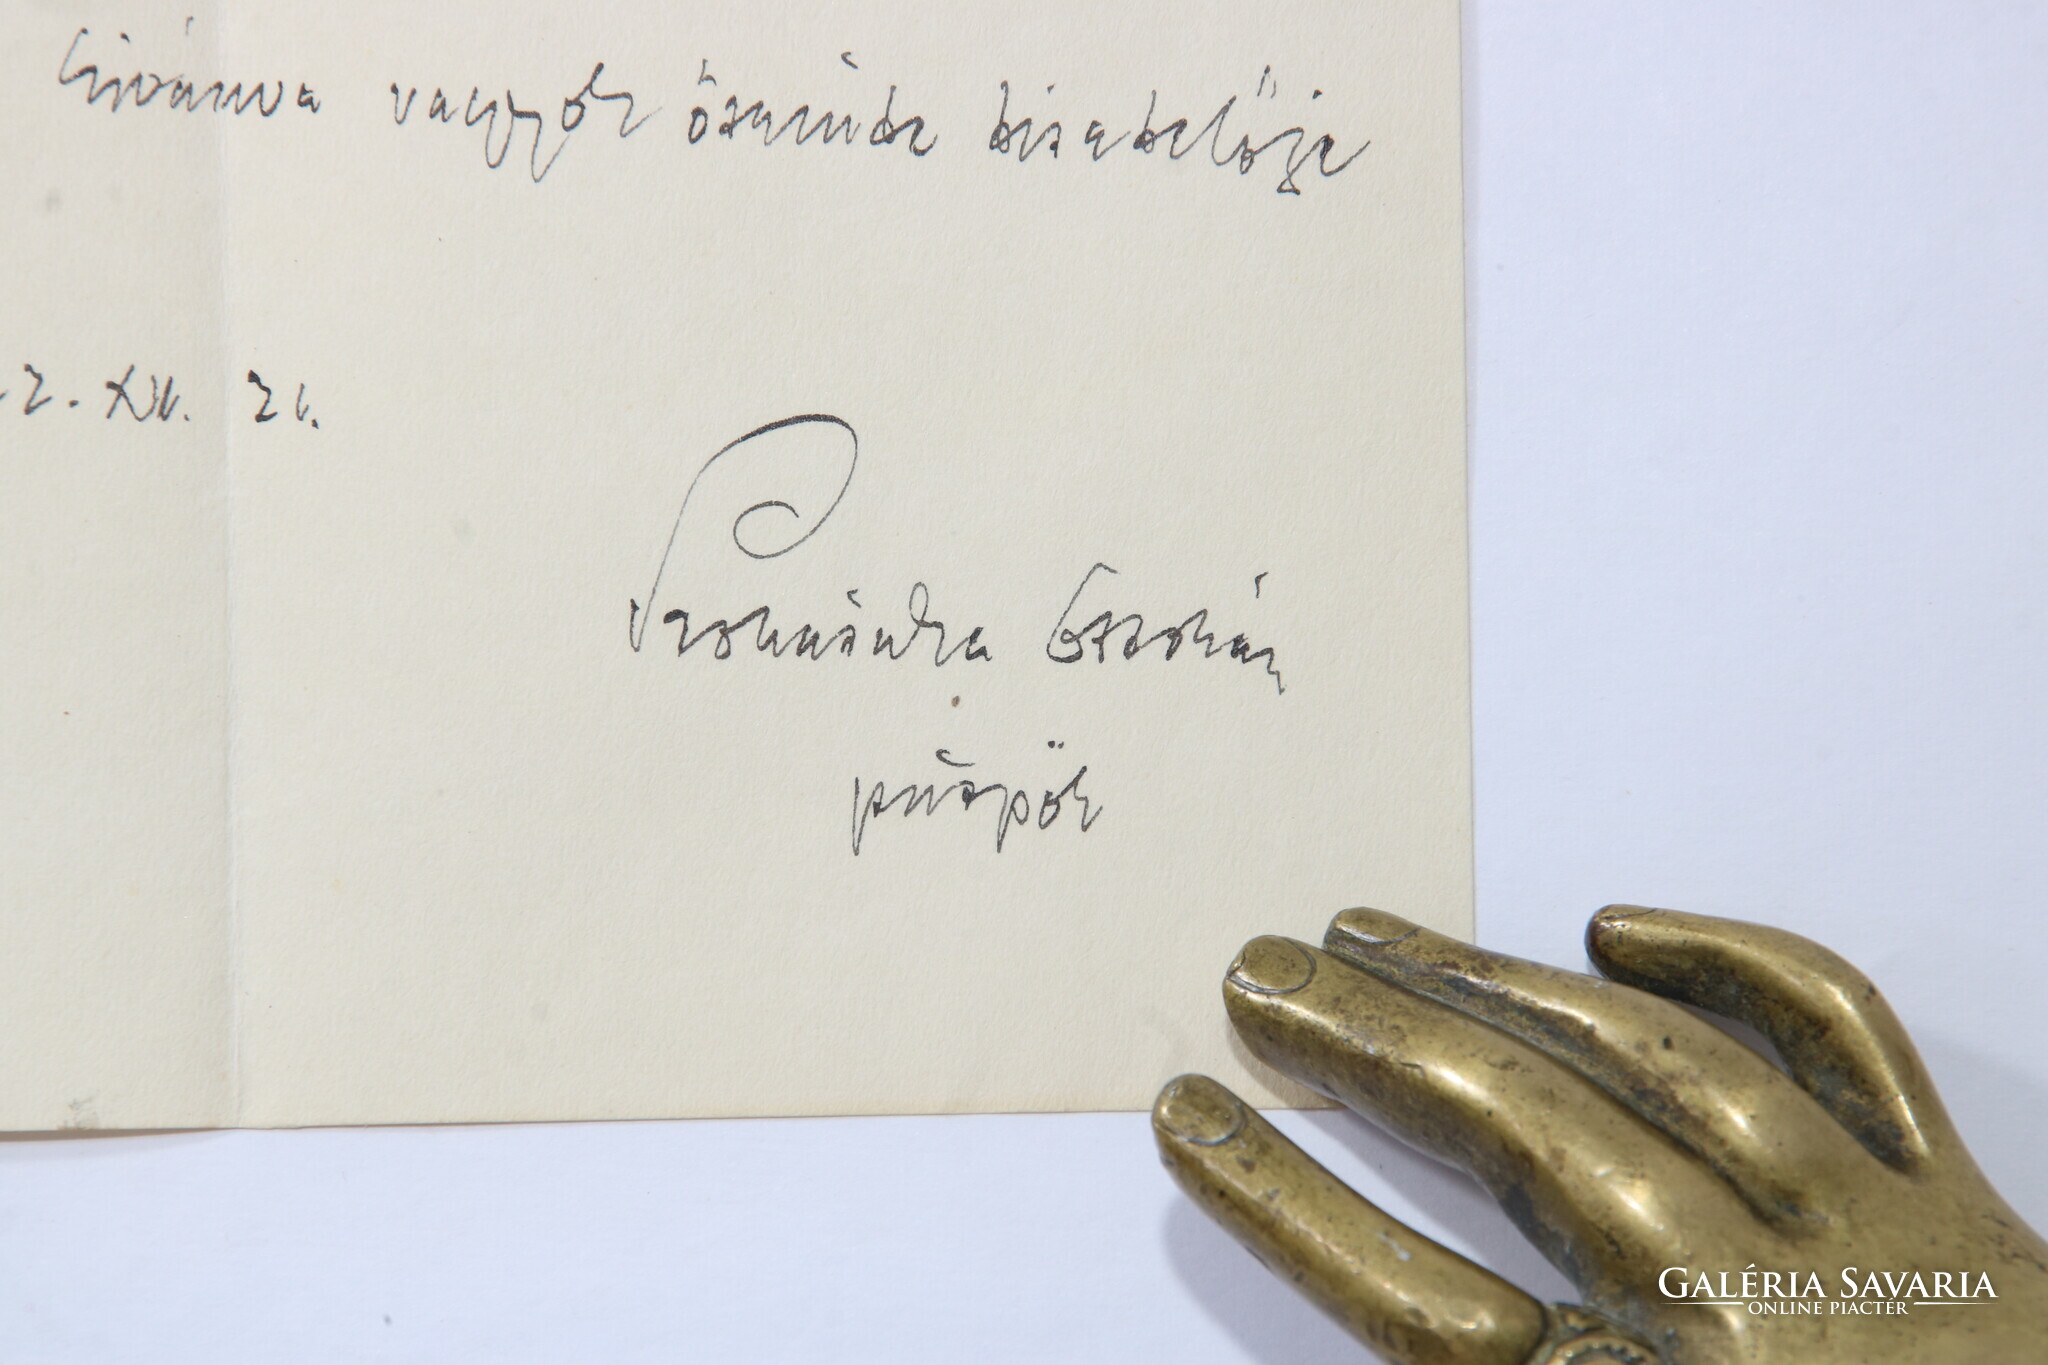 kívánva vagyok őszinte tisztelője
2. XII. 21.
Prohászka Ottokár
püspök
GALÉRIA SAVARIA
ONLINE PIACTÉR